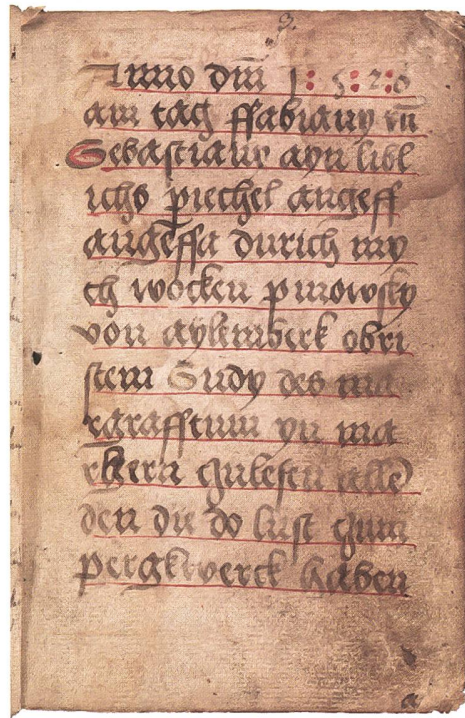 3.
Anno dm̄ 1:5:2:0
am tag ffabiany vn̄
Sebastiany ayn libl
ichs piechel angeff
angeffa durich my
ch wocken pniowsky
von aylemberk obri
stem Sudy des ma
rgrafftum yn ma
rhern czulesen alle
den die do lust czum
pergkwerck haben